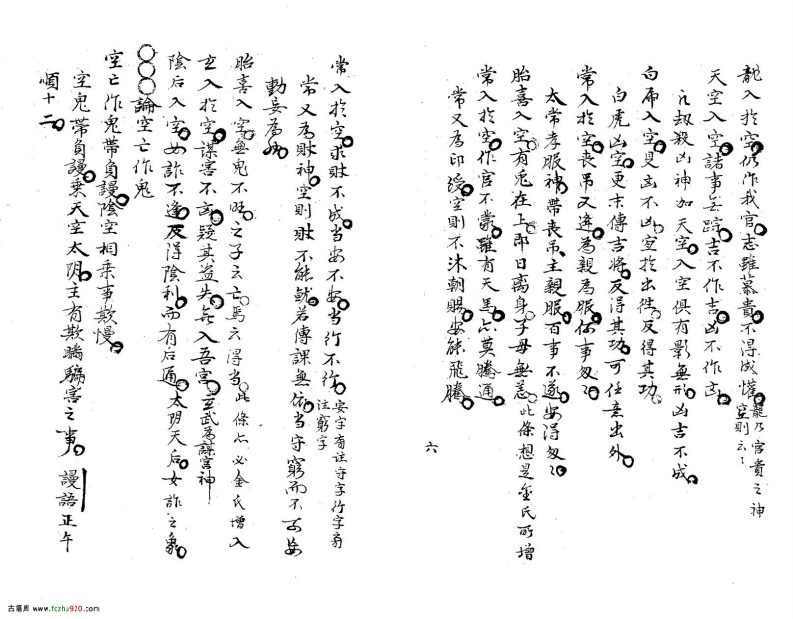 龍入於空仍作我官志雖慕貴不得成懽龍乃官貴之神空則云云
天空入空諸事無踪吉不作吉凶不作凶
亡劫殺凶神加天空入空俱有影無形凶吉不成
白虎入空見凶不凶空於出徃反得其功
白虎凶空更末傳吉將反得其功可任意出外
常入於空喪吊又逢為親為服何事匆匆
太常孝服神帶喪吊主親服百事不遂安得匆匆
胎喜入空有鬼在上即日离身子母無恙此條想是金氏所增
常入於空作官不蒙雖有天馬亦莫騰通
常又為印綬空則不沐朝賜安能飛騰
六
常入於空求財不成当安不安当行不行安字有註守字行字有註窮字
常又為財神空則財不能就若傳課無依当守窮而不可安
動妄為也
胎喜入空無鬼不旺之子云亡焉云得当此條亦必金氏增入
玄入於空謀害不言疑其盗失無入吾宮玄武為謀害神
陰后入空女詐不逢反得陰利而有后通太阴天后女詐之象
論空亡作鬼
空亡作鬼帶自謾陰空相乘事欺慢
空鬼帶自謾乘天空太阴主有欺瞞騙害之事謾語正午
順十二
古籍库 www.fczhu920.com